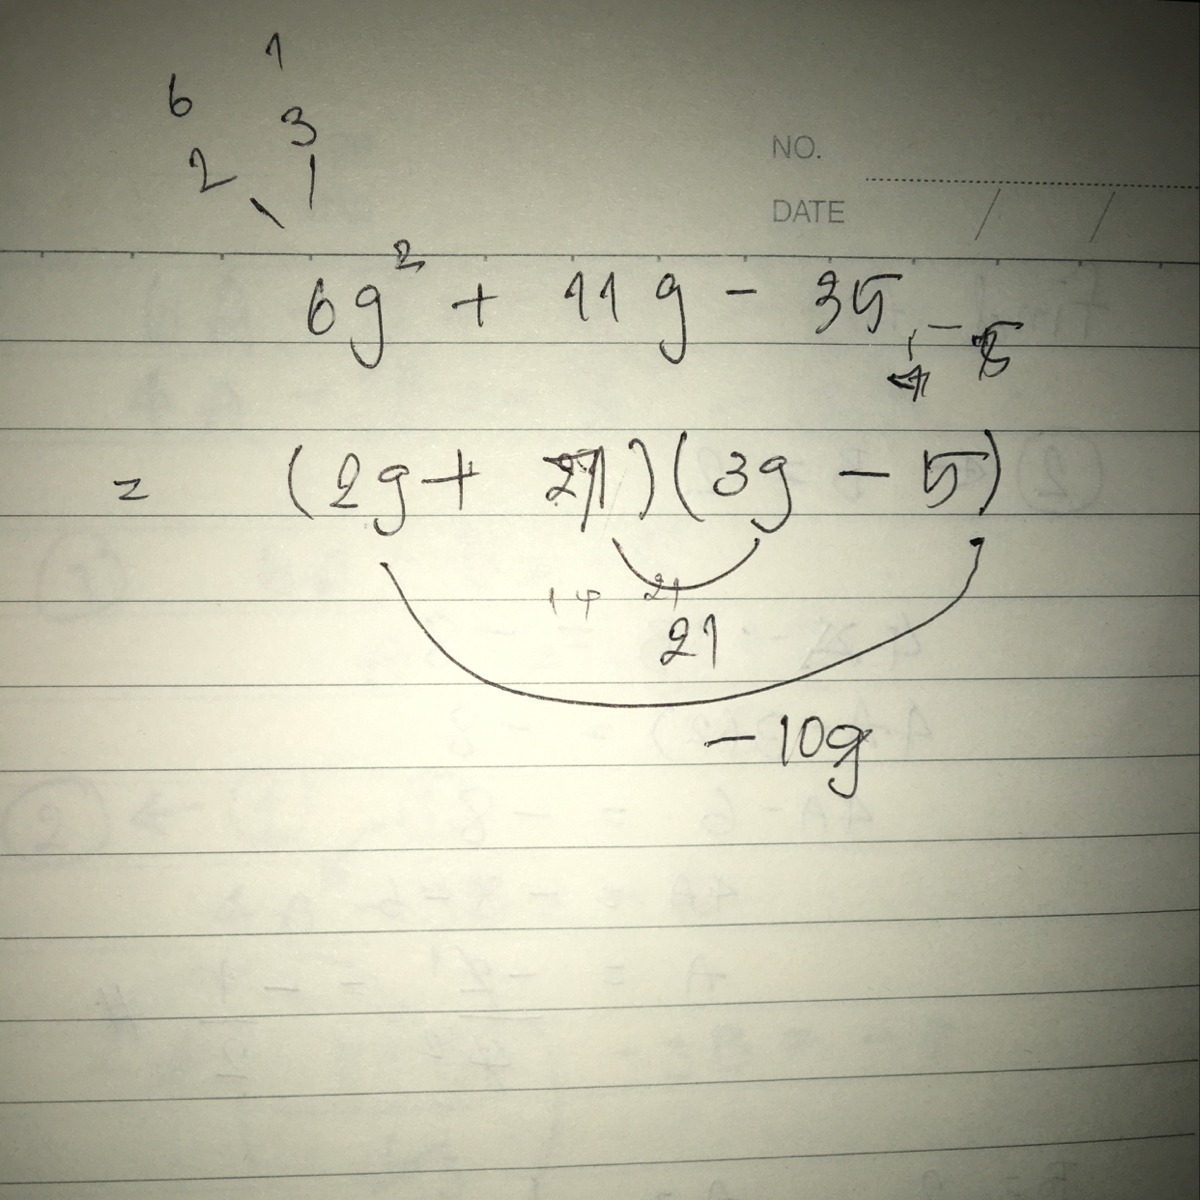 1
6 3
2
NO.
DATE / /
6g² + 11g - 35
- 5
= (2g + 7)(3g - 5)
14 21
21
- 10g